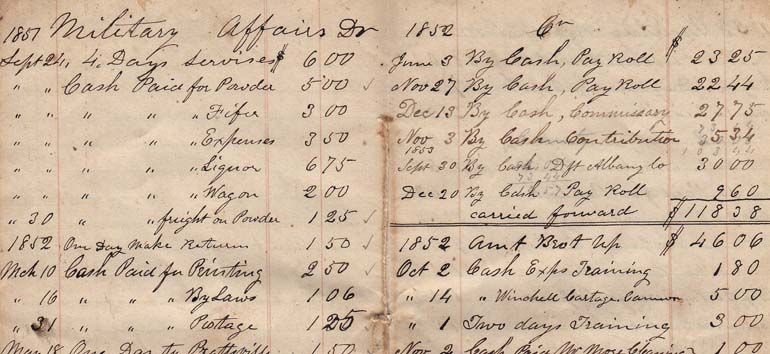 1851 Military Affairs Dr
Sept 24, 4, Days Servises $ 6 00
" " Cash Paid for Powder 5 00
" " " " " Fifer 3 00
" " " " " Expenses 3 50
" " " " " Liquor 6 75
" " " " " Wagon 2 00
" 30 " " " freight on Powder 1 25
1852 One Day Make Return 1 50
Mch 10 Cash Paid for Printing 2 50
" 16 " " " By Laws 1 06
" 31 " " " Postage 1 25
Mar 18 One Day to Prattsville 1 50
1852 Cr
June 3 By Cash, Pay Roll $ 23 25
Nov 27 By Cash, Pay Roll 22 44
Dec 13 By Cash, Commissary 27 75
Nov 3 By Cash Contribution 5 34
1853
Sept 30 By Cash Dft Albany Co 30 00
Dec 20 By Cash Pay Roll 9 60
carried forward $ 118 38
1852 Amt Brot Up $ 46 06
Oct 2 Cash Exps Training 1 80
" 14 " Winchell Cartage Cannon 5 00
" 1 Two days Training 3 00
Nov 2 Cash Paid Wm More 1